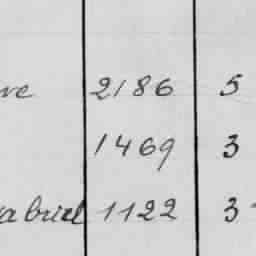 ve 2186 5
1469 3
abriel 1122 3